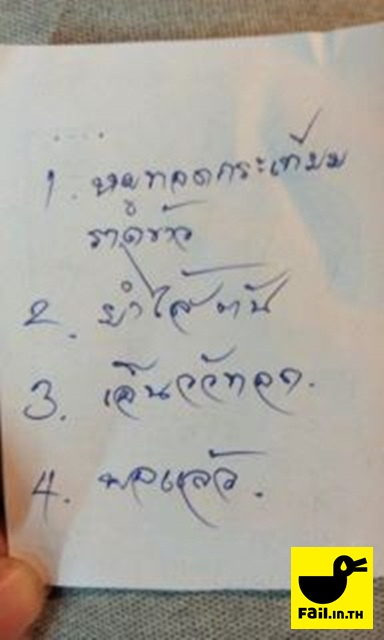 1. หมูทอดกระเทียม
ราดข้าว
2. ยำไส้ตัน
3. เอ็นวัวทอด.
4. พอแล้ว.
FAiL.IN.TH